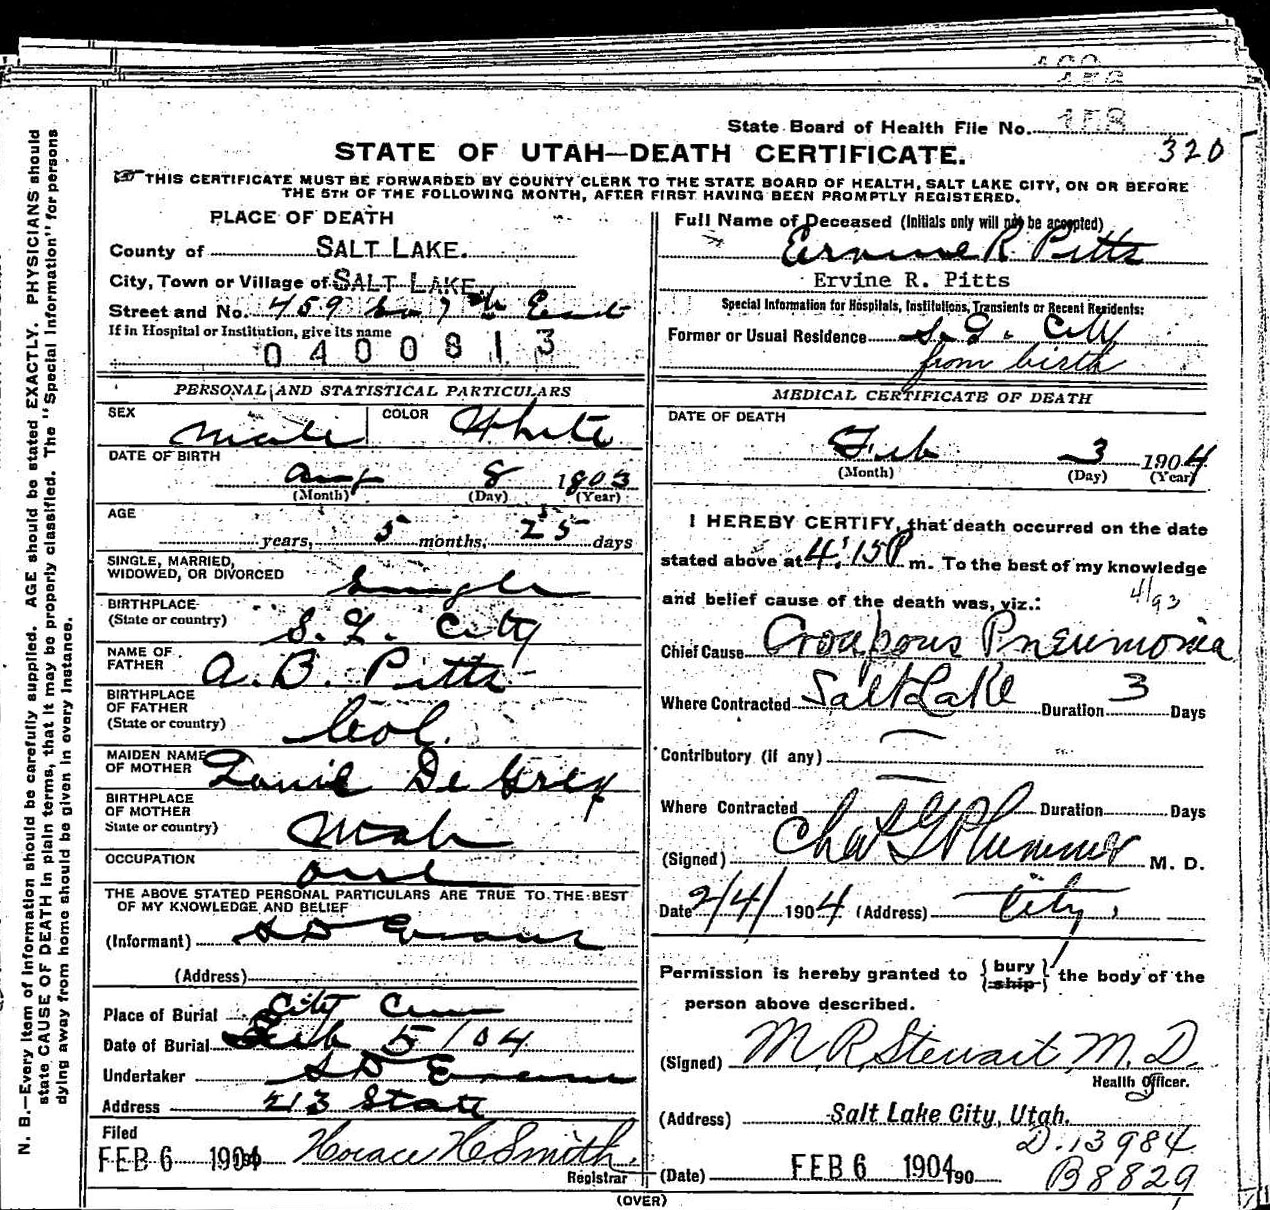 158
State Board of Health File No. 158
320
STATE OF UTAH—DEATH CERTIFICATE.
THIS CERTIFICATE MUST BE FORWARDED BY COUNTY CLERK TO THE STATE BOARD OF HEALTH, SALT LAKE CITY, ON OR BEFORE
THE 5TH OF THE FOLLOWING MONTH, AFTER FIRST HAVING BEEN PROMPTLY REGISTERED.
N. B.—Every item of information should be carefully supplied. AGE should be stated EXACTLY. PHYSICIANS should
state CAUSE OF DEATH in plain terms, that it may be properly classified. The "Special Information" for persons
dying away from home should be given in every instance.
PLACE OF DEATH
County of SALT LAKE.
City, Town or Village of SALT LAKE.
Street and No. 459 So 7th East
If in Hospital or Institution, give its name
0400813
PERSONAL AND STATISTICAL PARTICULARS
SEX Male COLOR White
DATE OF BIRTH
Aug 8 1903
(Month) (Day) (Year)
AGE
years, 5 months, 25 days
SINGLE, MARRIED,
WIDOWED, OR DIVORCED Single
BIRTHPLACE
(State or country) S. L. City
NAME OF
FATHER A. B. Pitts
BIRTHPLACE
OF FATHER
(State or country) Col.
MAIDEN NAME
OF MOTHER De Grey
BIRTHPLACE
OF MOTHER
State or country) Utah
OCCUPATION
THE ABOVE STATED PERSONAL PARTICULARS ARE TRUE TO THE BEST
OF MY KNOWLEDGE AND BELIEF
(Informant) S D Evans
(Address)
Place of Burial City Cem
Date of Burial Feb 5/04
Undertaker S D Evans
Address 213 State
Filed
FEB 6 1904 Horace H. Smith.
Registrar
Full Name of Deceased (Initials only will not be accepted)
Ervine R. Pitts
Ervine R. Pitts
Special Information for Hospitals, Institutions, Transients or Recent Residents:
Former or Usual Residence S. L. City
from birth
MEDICAL CERTIFICATE OF DEATH
DATE OF DEATH
Feb 3 1904
(Month) (Day) (Year)
I HEREBY CERTIFY, that death occurred on the date
stated above at 4:15 P m. To the best of my knowledge
and belief cause of the death was, viz.: 4/93
Chief Cause Croupous Pneumonia
Where Contracted Salt Lake Duration 3 Days
Contributory (if any)
Where Contracted Duration Days
(Signed) Chas G Plummer M. D.
Date 2/4/ 1904 (Address) City.
Permission is hereby granted to {bury ship} the body of the
person above described.
(Signed) M. R. Stewart M. D.
Health Officer.
(Address) Salt Lake City, Utah.
D. 13984
(Date) FEB 6 1904 190
B 8829
(OVER)